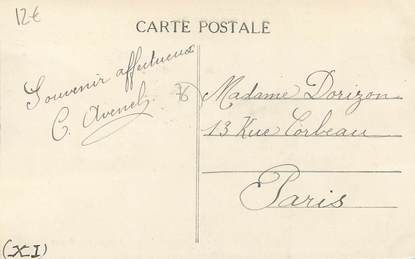 12€
CARTE POSTALE
Souvenir affectueux
C. Avenel
76
Madame Dorizon
13 Rue Corbeau
Paris
(XI)